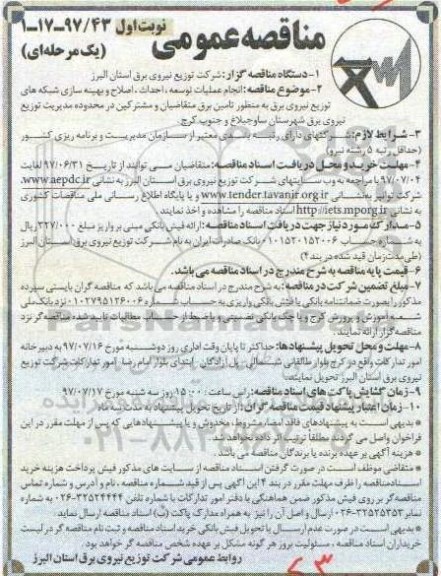 مناقصه عمومی
نوبت اول ۹۷/۴۳-۱۷-۱
(یک مرحله‌ای)
۱- دستگاه مناقصه گزار: شرکت توزیع نیروی برق استان البرز
۲- موضوع مناقصه: انجام عملیات توسعه، احداث، اصلاح و بهینه سازی شبکه های
توزیع نیروی برق به منظور تامین برق متقاضیان و مشترکین در محدوده مدیریت توزیع
نیروی برق شهرستان ساوجبلاغ و جنوب کرج
۳- شرایط لازم: شرکتهای دارای رتبه بندی معتبر از سازمان مدیریت و برنامه ریزی کشور
(حداقل رتبه ۵ رشته نیرو)
۴- مهلت خرید و محل دریافت اسناد مناقصه: متقاضیان می توانند از تاریخ ۹۷/۰۶/۳۱ لغایت
۹۷/۰۷/۰۴ با مراجعه به وب سایتهای شرکت توزیع نیروی برق استان البرز به نشانی www.aepdc.ir،
شرکت توانیر به نشانی www.tender.tavanir.org.ir و یا پایگاه اطلاع رسانی ملی مناقصات کشوری
به نشانی http://iets.mporg.ir اسناد مناقصه را مشاهده و اخذ نمایند.
۵- مدارک مورد نیاز جهت دریافت اسناد مناقصه: ارائه فیش بانکی مبنی بر واریز مبلغ ۳۲۷/۰۰۰ ریال
به شماره حساب ۰۱۰۱۵۲۰۱۵۲۰۰۶ بانک صادرات ایران به نام شرکت توزیع نیروی برق استان البرز
(طی مدت زمان قید شده در بند ۴)
۶- قیمت پایه مناقصه به شرح مندرج در اسناد مناقصه می باشد.
۷- مبلغ تضمین شرکت در مناقصه: به شرح مندرج در اسناد مناقصه می باشد که مناقصه گران بایستی سپرده
مذکور را بصورت ضمانتنامه بانکی یا فیش بانکی واریزی به حساب شماره ۰۱۰۲۷۹۵۱۲۶۰۰۶ نزد بانک ملی
شعبه آموزش و پرورش کرج و یا چک بانکی تضمینی و یا صورت خالص مطالبات تایید شده مناقصه گر نزد
مناقصه گزار ارائه نمایند.
۸- مهلت و محل تحویل پیشنهادها: حداکثر تا پایان وقت اداری روز دوشنبه مورخ ۹۷/۰۷/۱۶ به دبیرخانه
امور تدارکات واقع در کرج بلوار طالقانی شمالی، پل آزادگان، ابتدای بلوار امام رضا، امور تدارکات شرکت توزیع
نیروی برق استان البرز تحویل نمایند.
۹- زمان گشایش پاکت های اسناد مناقصه: راس ساعت ۱۵:۰۰ روز سه شنبه مورخ ۹۷/۰۷/۱۷
۱۰- زمان اعتبار پیشنهاد قیمت مناقصه گران: از تاریخ تحویل پیشنهاد به مدت سه ماه
* بدیهی است به پیشنهادهای فاقد امضاء، مشروط، مخدوش و یا پیشنهادهایی که پس از مهلت مقرر در این
فراخوان واصل می گردد مطلقاً ترتیب اثر داده نخواهد شد.
* هزینه آگهی بر عهده برنده یا برندگان مناقصه می باشد.
* متقاضی موظف است در صورت گرفتن اسناد مناقصه از سایت های مذکور فیش پرداخت هزینه خرید
اسناد مناقصه را ظرف مهلت مقرر در بند ۴ این آگهی پس از قید شماره مناقصه، نام و آدرس و شماره تماس
مناقصه گر بر روی فیش مذکور ضمن هماهنگی با دفتر امور تدارکات با شماره تلفن ۳۲۵۲۴۴۴۴-۰۲۶ به شماره
نمابر ۳۲۵۲۵۳۵۳-۰۲۶ ارسال و اصل آن را نیز به همراه مدارک پاکت (ب) اسناد مناقصه ارسال نماید.
* بدیهی است در صورت عدم ارسال یا تحویل فیش بانکی خرید اسناد مناقصه و ثبت نام مناقصه گر در لیست
خریداران اسناد مناقصه، مسئولیت بروز هر گونه مشکل بر عهده شخص مناقصه گر خواهد بود.
روابط عمومی شرکت توزیع نیروی برق استان البرز